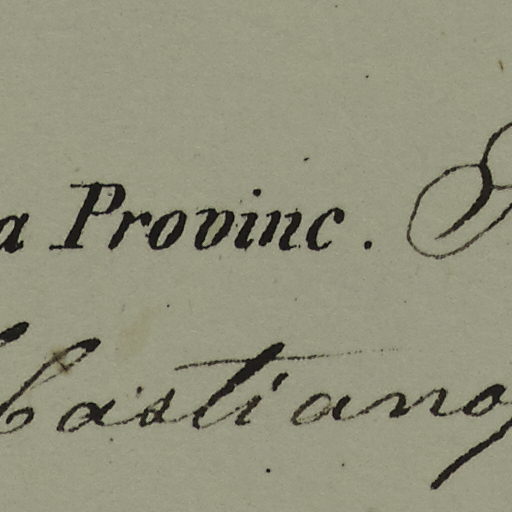 a Provinc.
Castiano